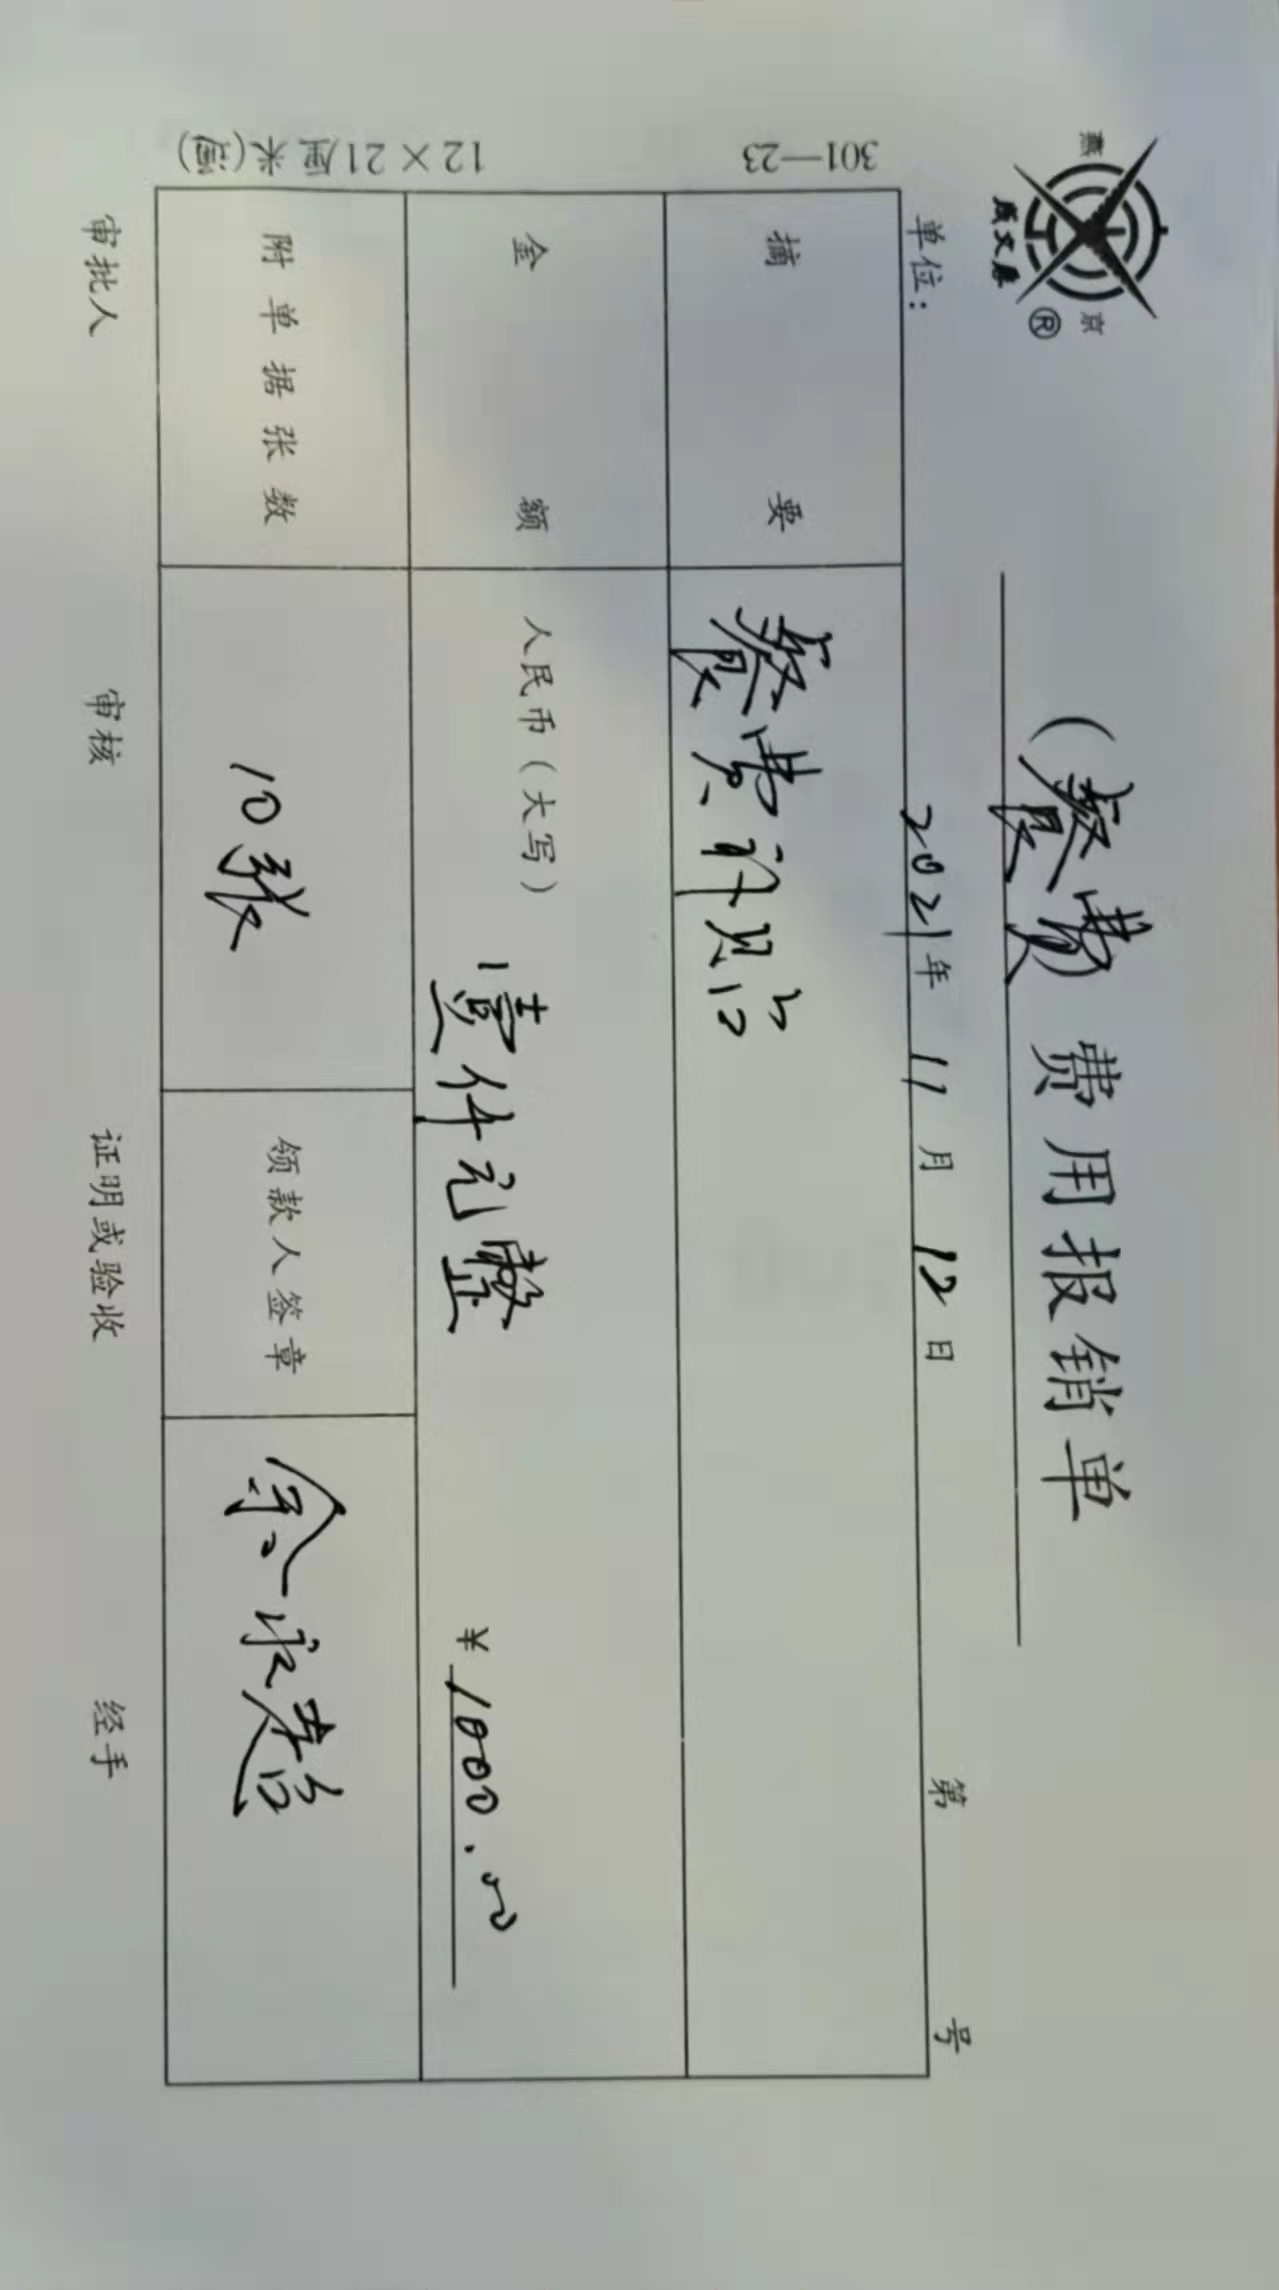 燕 京
成文厚 ®
(餐费 费用报销单
单位： 2021年 11月 12日 第 号
摘要 餐费补贴
金额 人民币（大写） 壹仟元整 ¥1000.00
附单据张数 10张 领款人签章
审批人 审核 证明或验收 经手
301—23 12×21厘米(蓝)